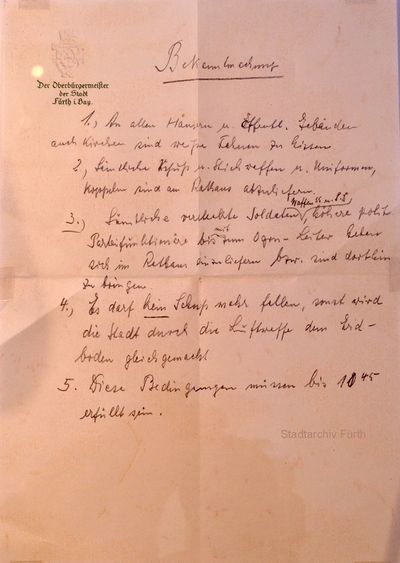 Der Oberbürgermeister
der Stadt
Fürth i. Bay.
Bekanntmachung
1.) An allen Häusern u. öffentl. Gebäuden
auch Kirchen sind weiße Fahnen zu hissen
2.) Sämtliche Schuß u. Stichwaffen u. Uniformen,
Koppeln sind am Rathaus abzuliefern.
Waffen SS u. P.S.,
3.) Sämtliche versteckte Soldaten, höhere polit.
Parteifunktionäre bis zum Ogru-Leiter haben
sich im Rathaus einzuliefern bzw. sind dorthin
zu bringen
4.) Es darf kein Schuß mehr fallen, sonst wird
die Stadt durch die Luftwaffe dem Erd-
boden gleichgemacht
5. Diese Bedingungen müssen bis 10 45
erfüllt sein.
Stadtarchiv Fürth